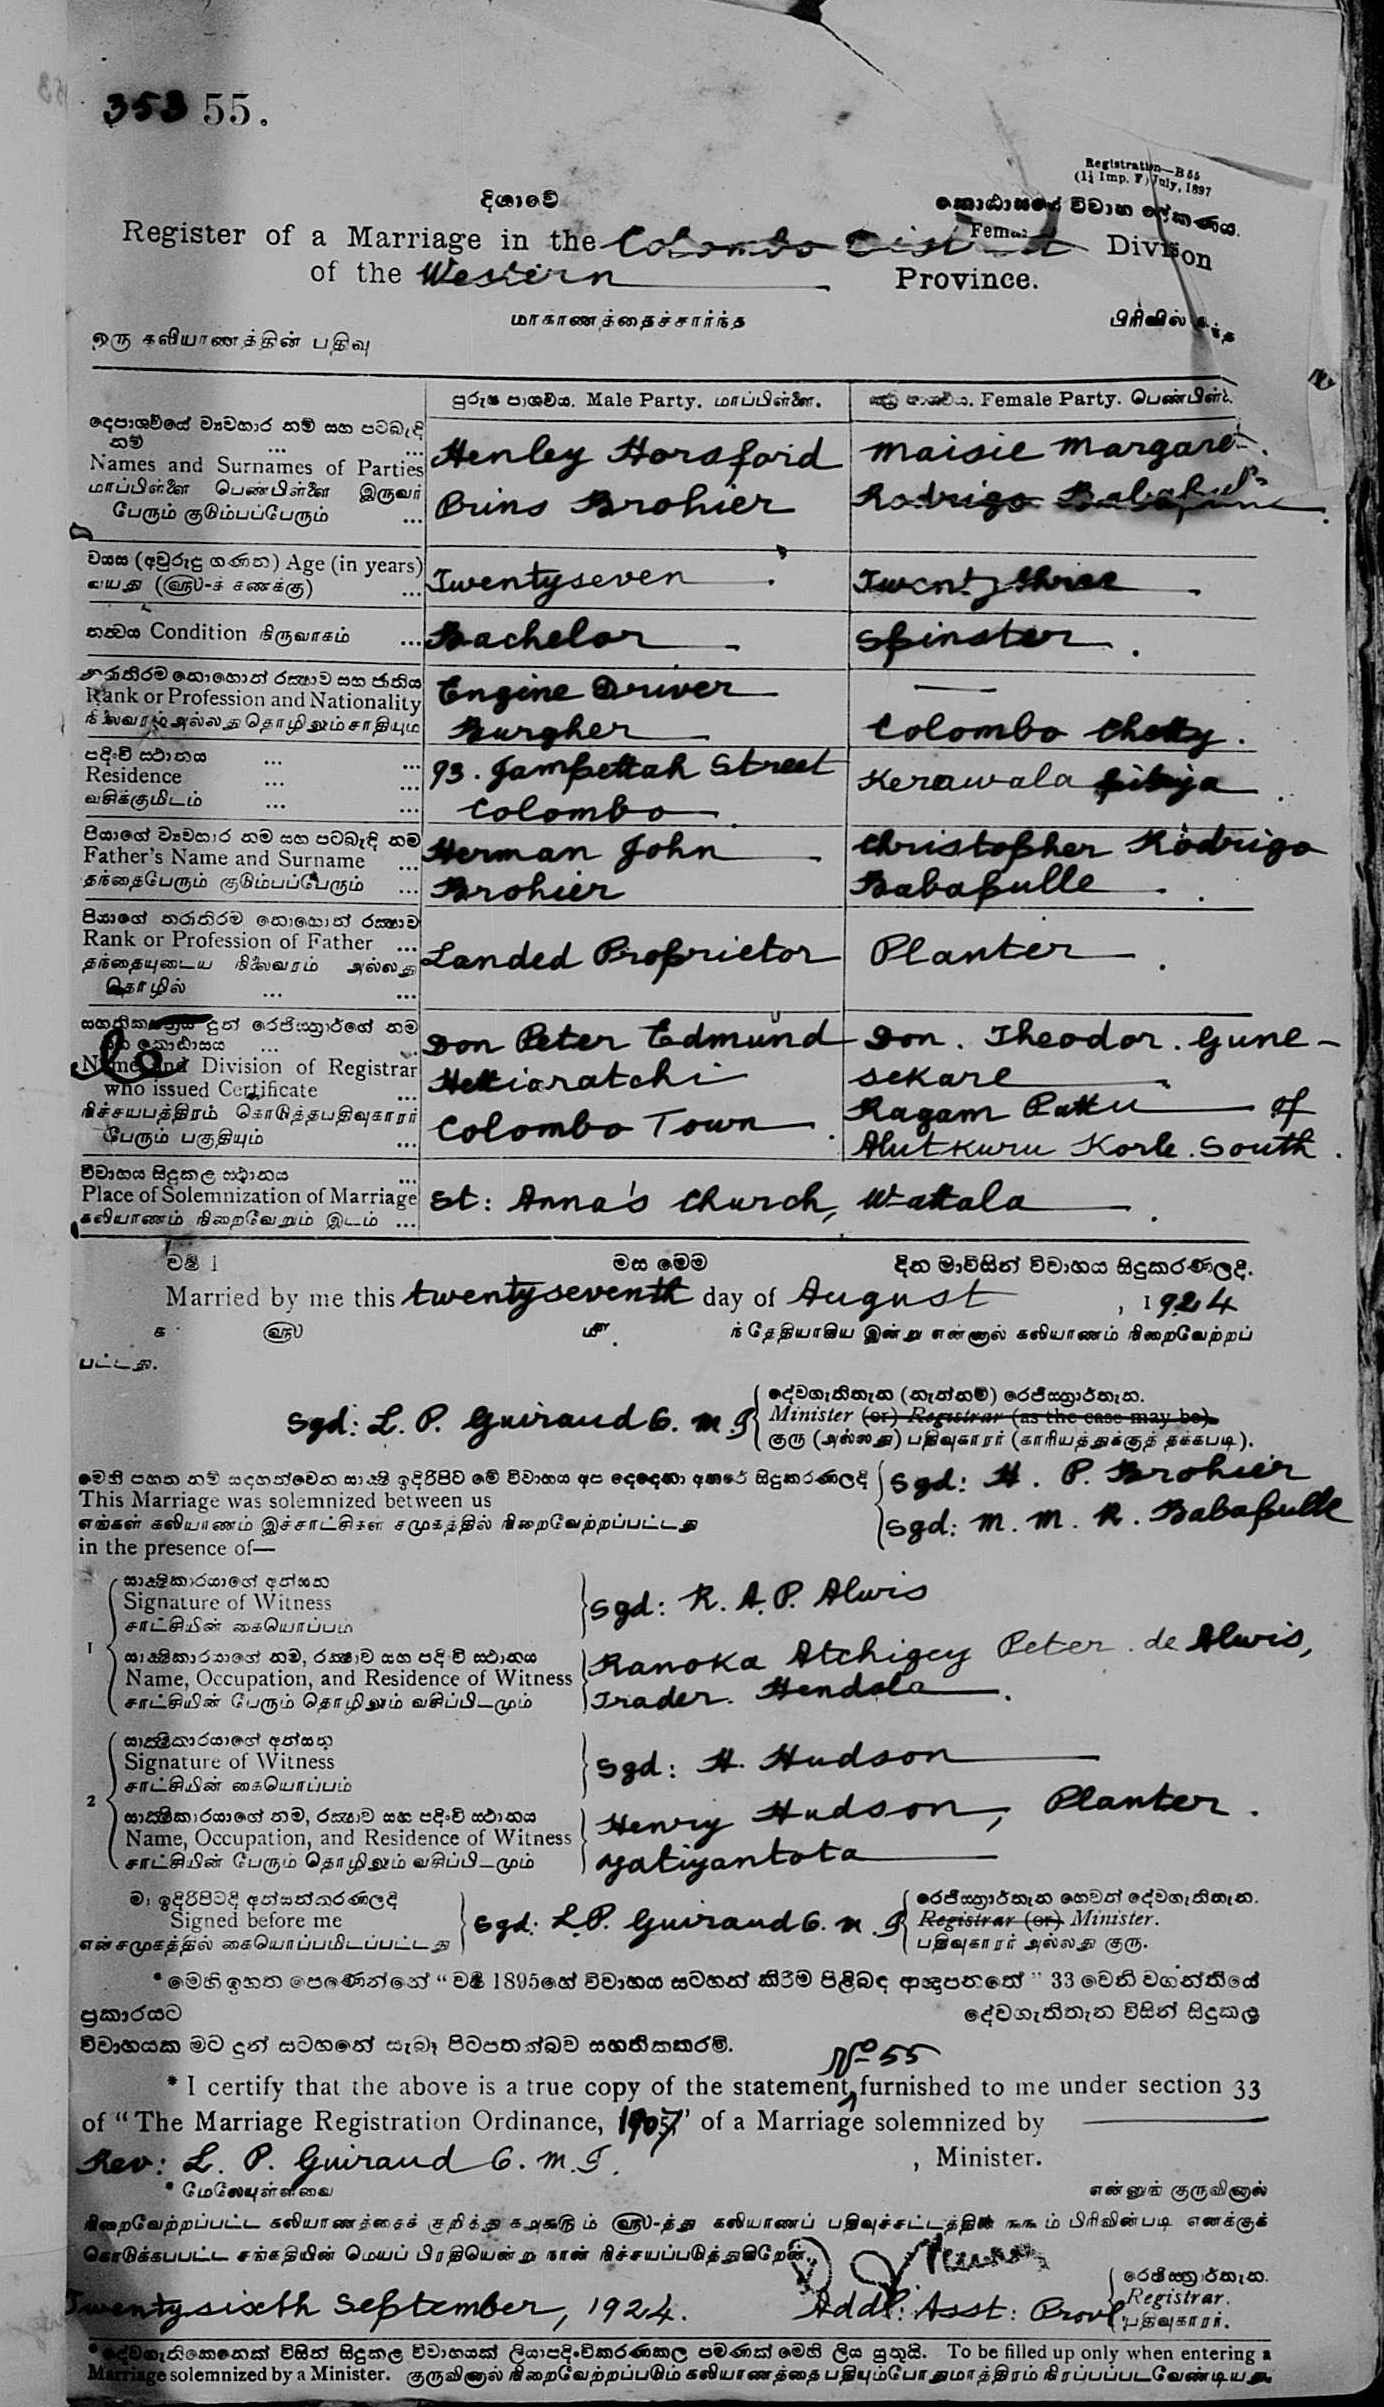 353 55.
Registration—B 55
(1½ Imp. F) July, 1897
දිශාවේ
කොඨාසයේ විවාහ ලේකණය.
Register of a Marriage in the Colombo District Division
of the Western Province.
மாகாணத்தைச்சார்ந்த பிரிவில்
ஒரு கலியாணத்தின் பதிவு
පුරුෂ පාශවීය. Male Party. மாப்பிள்ளை. Female Party. பெண்பிள்ளை.
දෙපාශවීයේ ව්‍යවහාර නම් සහ පටබැඳි
නම් ... ...
Names and Surnames of Parties
மாப்பிள்ளை பெண்பிள்ளை இருவர்
பேரும் குடும்பப்பேரும் ...
Henley Horsford
Prins Brohier
Maisie Margaret.
Rodrigo Babapulle.
වයස (අවුරුදු ගණන) Age (in years)
வயது (௵-ச் சணக்கு) ...
Twentyseven.
Twenty three.
තත්‍වය Condition நிருவாகம் ...
Bachelor.
Spinster.
Rank or Profession and Nationality
நிலைவரம் அல்லது தொழிலும் சாதியும்
Engine Driver
Burgher
—
Colombo Chetty.
පදිංචි ස්ථානය ... ...
Residence ... ...
வசிக்குமிடம் ... ...
93. Jampettah Street
Colombo.
Kerawalapitiya.
පියාගේ ව්‍යවහාර නම සහ පටබැඳි නම
Father's Name and Surname ...
தந்தைபேரும் குடும்பப்பேரும் ...
Herman John
Brohier
Christopher Rodrigo
Babapulle.
පියාගේ තරාතිරම නොහොත් රක්‍ෂාව
Rank or Profession of Father ...
தந்தையுடைய நிலைவரம் அல்லது
தொழில் ... ...
Landed Proprietor
Planter.
සහතිකපත්‍රය දුන් රෙජිස්ත්‍රාර්ගේ නම
සහ කොඨාසය ...
Name and Division of Registrar
who issued Certificate ...
நிச்சயபத்திரம் கொடுத்தபதிவுகாரர்
பேரும் பகுதியும் ...
Don Peter Edmund
Hettiaratchi
Colombo Town.
Don. Theodor. Gune-
sekare
Ragam Pattu of
Alutkuru Korle. South.
විවාහය සිදුකල ස්ථානය ...
Place of Solemnization of Marriage
கலியாணம் நிறைவேறும் இடம் ...
St: Anna's Church, Wattala.
වර්‍ෂ 1 මස මෙම දින මාවිසින් විවාහය සිදුකරණලදි.
Married by me this twentyseventh day of August, 1924
௵ ௴ ந் தேதியாகிய இன்று என்னால் கலியாணம் நிறைவேற்றப்
பட்டது.
දේවගැතිතැන (නැත්නම්) රෙජිස්ත්‍රාර්තැන.
Sgd: L. P. Guiraud O. M. I.
Minister (or) Registrar (as the case may be).
குரு (அல்லது) பதிவுகாரர் (காரியத்துக்குத் தக்கபடி).
මෙහි පහත නම් සඳහන්වෙන සාක්‍ෂි ඉදිරිපිට මේ විවාහය අප දෙදෙනා අතරේ සිදුකරණලදි
This Marriage was solemnized between us
எங்கள் கலியாணம் இச்சாட்சிகள் சமுகத்தில் நிறைவேற்றப்பட்டது
in the presence of—
Sgd: H. P. Brohier
Sgd: M. M. R. Babapulle
1
සාක්‍ෂිකාරයාගේ අත්සන
Signature of Witness
சாட்சியின் கையொப்பம்
Sgd: R. A. P. Alwis
සාක්‍ෂිකාරයාගේ නම, රක්‍ෂාව සහ පදිංචි ස්ථානය
Name, Occupation, and Residence of Witness
சாட்சியின் பேரும் தொழிலும் வசிப்பிடமும்
Ranoka Atchigey Peter de Alwis,
Trader. Hendala.
2
සාක්‍ෂිකාරයාගේ අත්සන
Signature of Witness
சாட்சியின் கையொப்பம்
Sgd: H. Hudson
සාක්‍ෂිකාරයාගේ නම, රක්‍ෂාව සහ පදිංචි ස්ථානය
Name, Occupation, and Residence of Witness
சாட்சியின் பேரும் தொழிலும் வசிப்பிடமும்
Henry Hudson, Planter.
Yatiyantota
මා ඉදිරිපිටදී අත්සන්කරණලදි
Signed before me
என்சமுகத்தில் கையொப்பமிடப்பட்டது
Sgd: L. P. Guiraud O. M. I.
රෙජිස්ත්‍රාර්තැන හෙවත් දේවගැතිතැන.
Registrar (or) Minister.
பதிவுகாரர் அல்லது குரு.
*මෙහි ඉහත පෙණෙන්නේ “වර්‍ෂ 1895හේ විවාහය සටහන් කිරීම පිළිබඳ ආඥාපනතේ” 33 වෙනි වගන්තියේ
ප්‍රකාරයට දේවගැතිතැන විසින් සිදුකල
විවාහයක මට දුන් සටහනේ සැබෑ පිටපතක්බව සහතිකකරමි.
No 55
* I certify that the above is a true copy of the statement furnished to me under section 33
of “The Marriage Registration Ordinance, 1907,” of a Marriage solemnized by
Rev: L. P. Guiraud O. M. I., Minister.
* மேலேயுள்ளவை என்னுங் குருவினால்
நிறைவேற்றப்பட்ட கலியாணத்தைக் குறித்து ௵-த்து கலியாணப் பதிவுச்சட்டத்தின் ௩௩ம் பிரிவின்படி எனக்குக்
கொடுக்கபபட்ட சங்கதியின் மெய்ப் பிரதியென்று நான் நிச்சயப்படுத்துகிறேன்.
රෙජිස්ත්‍රාර්තැන.
Twenty sixth September, 1924. Addl: Asst: Provl:
Registrar.
பதிவுகாரர்.
*දේවගැතිකෙනෙක් විසින් සිදුකල විවාහයක් ලියාපදිංචිකරණකල පමණක් මෙහි ලිය යුතුයි. To be filled up only when entering a
Marriage solemnized by a Minister. குருவினால் நிறைவேற்றப்படும் கலியாணத்தை பதியும்போதுமாத்திரம் நிரப்பப்படவேண்டியது.